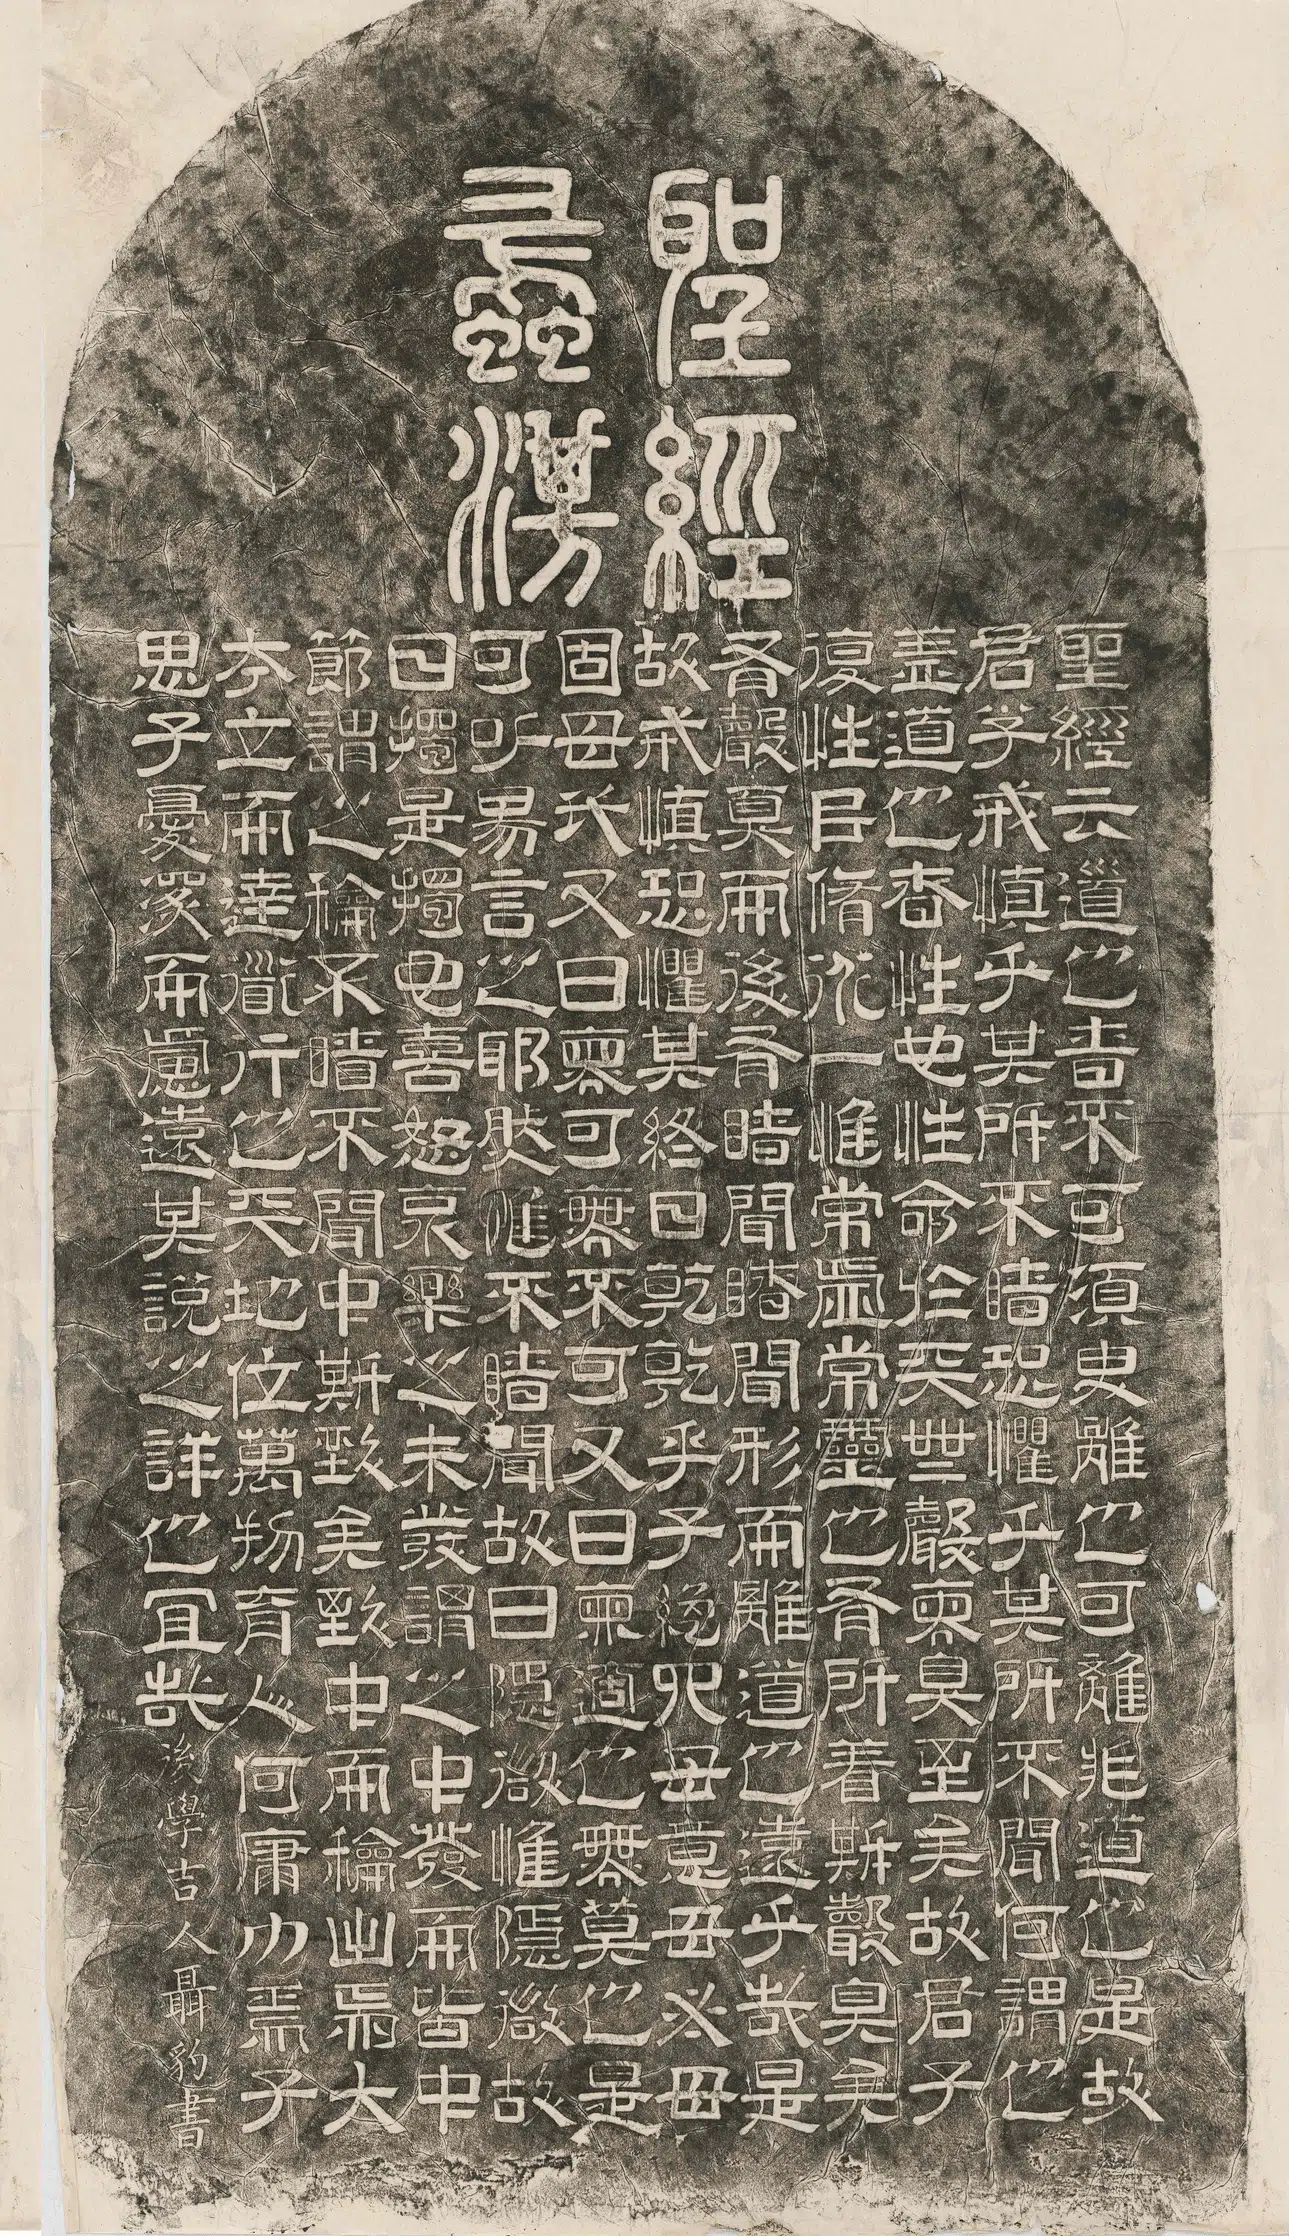 聖經
蠡
聖經云道也者不可須臾離也可離非道也是故
君子戒慎乎其所不睹恐懼乎其所不聞何謂也
蓋道也者性也性命於天無聲無臭至矣故君子
復性以脩爲一惟常虛常靈也有所着斯聲臭矣
有聲臭而後有睹聞睹聞形而離道也遠乎哉是
故戒慎恐懼其終日乾乾乎子絕四毋意毋必毋
固毋我又曰無可無不可又曰無適也無莫也是
可以易言之耶然惟不睹聞故曰隱微惟隱微故
曰獨是獨也喜怒哀樂之未發謂之中發而皆中
節謂之和不睹不聞中斯致矣致中而和出焉大
本立而達道行也天地位萬物育人何庸力焉子
思子憂深而慮遠其說之詳也宜哉後學吉人聶豹書